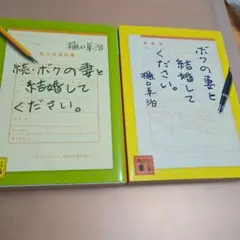 樋口卓治
続・ボクの妻と
結婚して
ください。
ボクの妻と
結婚して
ください。
樋口卓治